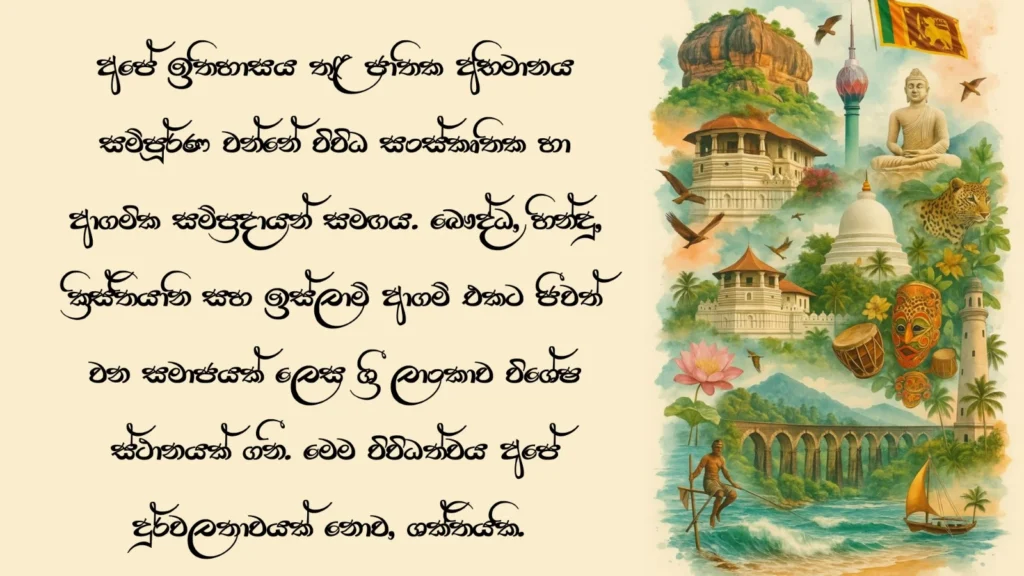 අපේ ඉතිහාසය තුළ ජාතික අභිමානය
සම්පූර්ණ වන්නේ විවිධ සංස්කෘතික හා
ආගමික සම්ප්‍රදායන් සමඟය. බෞද්ධ, හින්දු,
ක්‍රිස්තියානි සහ ඉස්ලාම් ආගම් එකට ජීවත්
වන සමාජයක් ලෙස ශ්‍රී ලාංකාව විශේෂ
ස්ථානයක් ගනී. මෙම විවිධත්වය අපේ
දුර්වලතාවයක් නොව, ශක්තියකි.